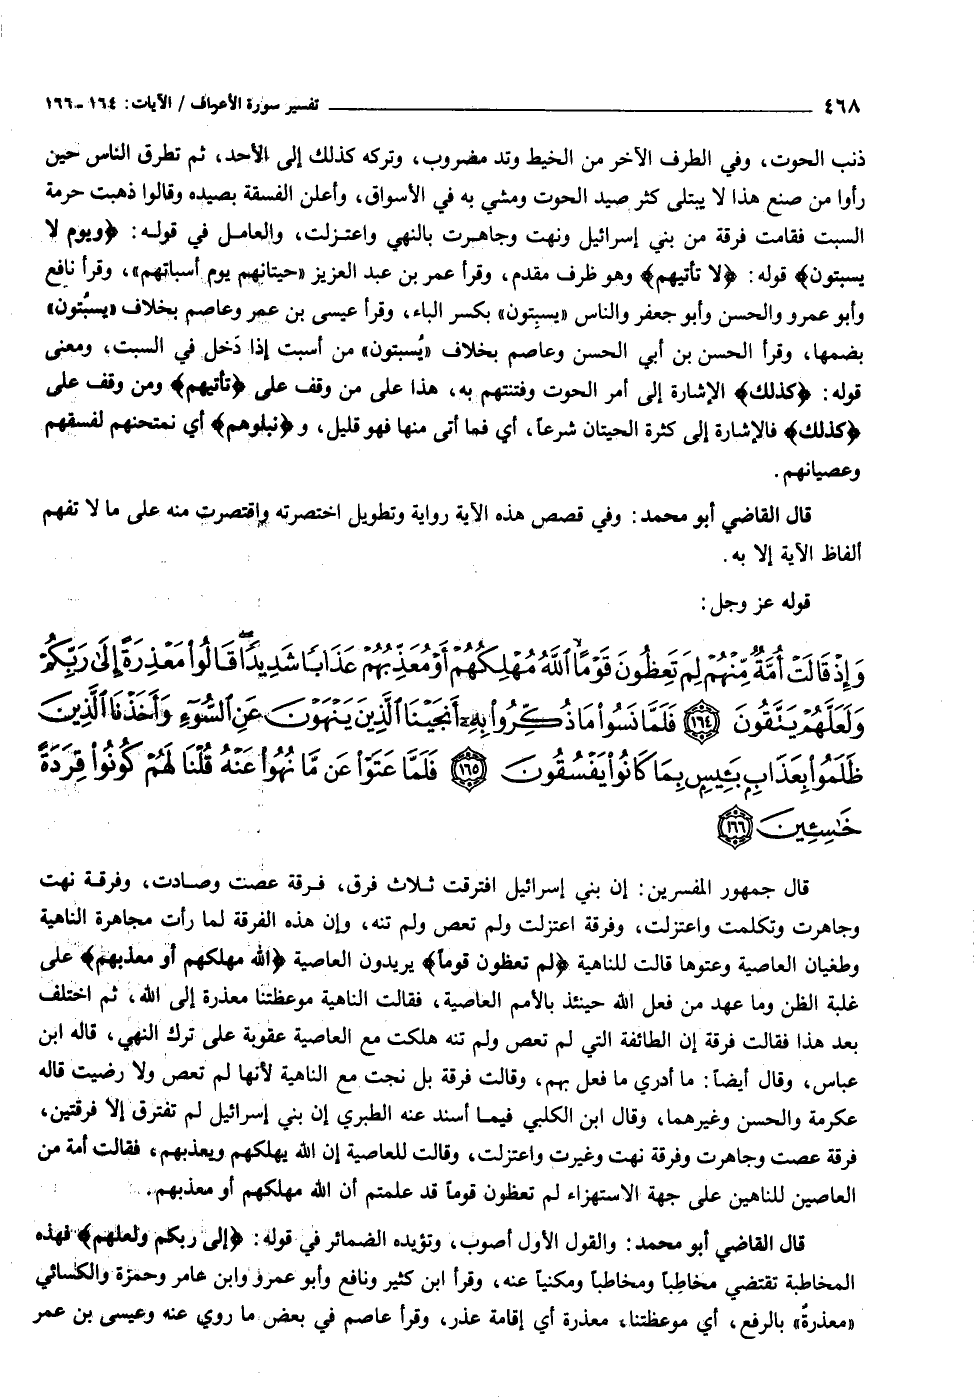 ٤٦٨ ــــــــــــ تفسير سورة الأعراف / الآيات: ١٦٤ - ١٦٦
ذنب الحوت، وفي الطرف الآخر من الخيط وتد مضروب، وتركه كذلك إلى الأحد، ثم تطرق الناس حين
رأوا من صنع هذا لا يبتلى كثر صيد الحوت ومشي به في الأسواق، وأعلن الفسقة بصيده وقالوا ذهبت حرمة
السبت فقامت فرقة من بني إسرائيل ونهت وجاهرت بالنهي واعتزلت، والعامل في قوله: ﴿ويوم لا
يسبتون﴾ قوله: ﴿لا تأتيهم﴾ وهو ظرف مقدم، وقرأ عمر بن عبد العزيز «حيتانهم يوم أسباتهم»، وقرأ نافع
وأبو عمرو والحسن وأبو جعفر والناس «يسبِتون» بكسر الباء، وقرأ عيسى بن عمر وعاصم بخلاف «يسبُتون»
بضمها، وقرأ الحسن بن أبي الحسن وعاصم بخلاف «يُسبتون» من أسبت إذا دخل في السبت، ومعنى
قوله: ﴿كذلك﴾ الإشارة إلى أمر الحوت وفتنتهم به، هذا على من وقف على ﴿تأتيهم﴾ ومن وقف على
﴿كذلك﴾ فالإشارة إلى كثرة الحيتان شرعاً، أي فما أتى منها فهو قليل، و﴿نبلوهم﴾ أي نمتحنهم لفسقهم
وعصيانهم.
قال القاضي أبو محمد: وفي قصص هذه الآية رواية وتطويل اختصرته واقتصرت منه على ما لا تفهم
ألفاظ الآية إلا به.
قوله عز وجل:
وَإِذْ قَالَتْ أُمَّةٌ مِّنْهُمْ لِمَ تَعِظُونَ قَوْمًا ۙ ٱللَّهُ مُهْلِكُهُمْ أَوْ مُعَذِّبُهُمْ عَذَابًا شَدِيدًا ۖ قَالُوا۟ مَعْذِرَةً إِلَىٰ رَبِّكُمْ
وَلَعَلَّهُمْ يَتَّقُونَ ﴿١٦٤﴾ فَلَمَّا نَسُوا۟ مَا ذُكِّرُوا۟ بِهِۦٓ أَنجَيْنَا ٱلَّذِينَ يَنْهَوْنَ عَنِ ٱلسُّوٓءِ وَأَخَذْنَا ٱلَّذِينَ
ظَلَمُوا۟ بِعَذَابٍۭ بَـِٔيسٍۭ بِمَا كَانُوا۟ يَفْسُقُونَ ﴿١٦٥﴾ فَلَمَّا عَتَوْا۟ عَن مَّا نُهُوا۟ عَنْهُ قُلْنَا لَهُمْ كُونُوا۟ قِرَدَةً
خَٰسِـِٔينَ ﴿١٦٦﴾
قال جمهور المفسرين: إن بني إسرائيل افترقت ثلاث فرق، فرقة عصت وصادت، وفرقة نهت
وجاهرت وتكلمت واعتزلت، وفرقة اعتزلت ولم تعص ولم تنه، وإن هذه الفرقة لما رأت مجاهرة الناهية
وطغيان العاصية وعتوها قالت للناهية ﴿لم تعظون قوماً﴾ يريدون العاصية ﴿الله مهلكهم أو معذبهم﴾ على
غلبة الظن وما عهد من فعل الله حينئذ بالأمم العاصية، فقالت الناهية موعظتنا معذرة إلى الله، ثم اختلف
بعد هذا فقالت فرقة إن الطائفة التي لم تعص ولم تنه هلكت مع العاصية عقوبة على ترك النهي، قاله ابن
عباس، وقال أيضاً: ما أدري ما فعل بهم، وقالت فرقة بل نجت مع الناهية لأنها لم تعص ولا رضيت قاله
عكرمة والحسن وغيرهما، وقال ابن الكلبي فيما أسند عنه الطبري إن بني إسرائيل لم تفترق إلا فرقتين،
فرقة عصت وجاهرت وفرقة نهت وغيرت واعتزلت، وقالت للعاصية إن الله يهلكهم ويعذبهم، فقالت أمة من
العاصين للناهين على جهة الاستهزاء لم تعظون قوماً قد علمتم أن الله مهلكهم أو معذبهم.
قال القاضي أبو محمد: والقول الأول أصوب، وتؤيده الضمائر في قوله: ﴿إلى ربكم ولعلهم﴾ فهذه
المخاطبة تقتضي مخاطِباً ومخاطَباً ومكنياً عنه، وقرأ ابن كثير ونافع وأبو عمرو وابن عامر وحمزة والكسائي
«معذرةٌ» بالرفع، أي موعظتنا، معذرة أي إقامة عذر، وقرأ عاصم في بعض ما روي عنه وعيسى بن عمر